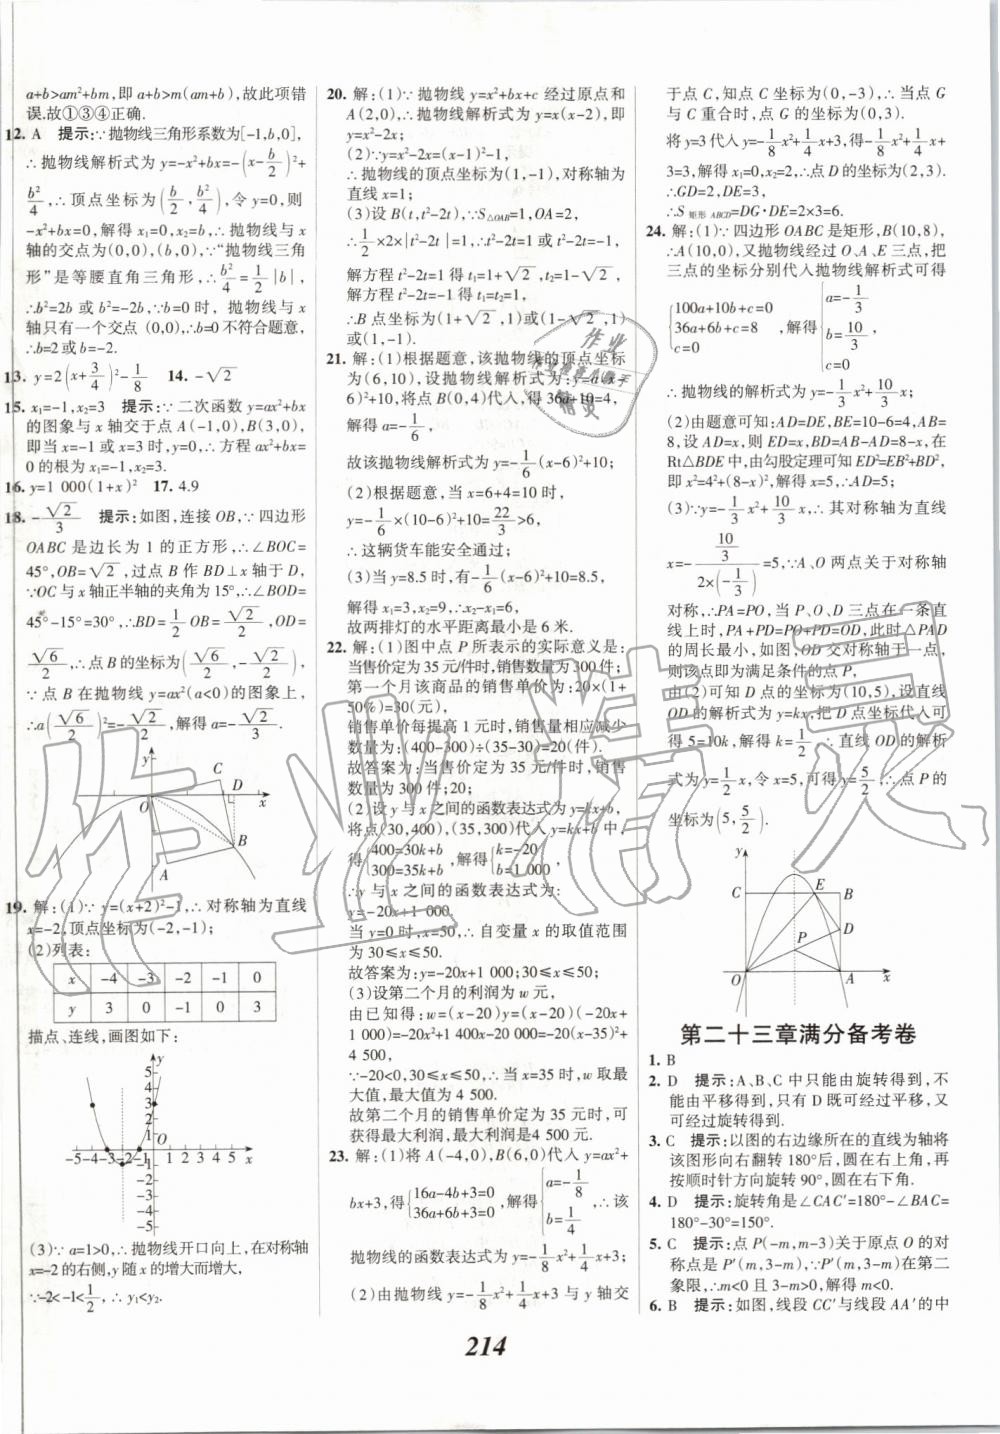 a+b>am²+bm,即 a+b>m(am+b),故此项错
误.故①③④正确.
12. A 提示:∵抛物线三角形系数为[-1,b,0],
∴抛物线解析式为 y=-x²+bx=-(x-b/2)²+
b²/4,∴顶点坐标为(b/2,b²/4),令 y=0,则
-x²+bx=0,解得 x₁=0,x₂=b,∴抛物线与 x
轴的交点为(0,0),(b,0),∵“抛物线三角
形”是等腰直角三角形,∴b²/4=1/2|b|,
∴b²=2b 或 b²=-2b,∵b=0 时,抛物线与 x
轴只有一个交点 (0,0),∴b=0 不符合题意,
∴b=2 或 b=-2.
13. y=2(x+3/4)²-1/8 14. -√2
15. x₁=-1,x₂=3 提示:∵二次函数 y=ax²+bx
的图象与 x 轴交于点 A(-1,0),B(3,0),
即当 x=-1 或 x=3 时,y=0,∴方程 ax²+bx=
0 的根为 x₁=-1,x₂=3.
16. y=1 000(1+x)² 17. 4.9
18. -√2/3 提示:如图,连接 OB,∵四边形
OABC 是边长为 1 的正方形,∴∠BOC=
45°,OB=√2,过点 B 作 BD⊥x 轴于 D,
∵OC 与 x 轴正半轴的夹角为 15°,∴∠BOD=
45°-15°=30°,∴BD=1/2 OB=√2/2,OD=
√6/2,∴点 B 的坐标为(√6/2,-√2/2),
∵点 B 在抛物线 y=ax²(a<0)的图象上,
∴a(√6/2)²=-√2/2,解得 a=-√2/3.
y
C
D
O
x
B
A
19. 解:(1)∵y=(x+2)²-1,∴对称轴为直线
x=-2,顶点坐标为(-2,-1);
(2)列表:
x -4 -3 -2 -1 0
y 3 0 -1 0 3
描点、连线,画图如下:
y
5
4
3
2
1
O
-5-4-3-2-1 1 2 3 4 5 x
-1
-2
-3
-4
-5
(3)∵a=1>0,∴抛物线开口向上,在对称轴
x=-2 的右侧,y 随 x 的增大而增大,
∵-2<-1<1/2,∴y₁<y₂.
20. 解:(1)∵抛物线 y=x²+bx+c 经过原点和
A(2,0),∴抛物线解析式为 y=x(x-2),即
y=x²-2x;
(2)∵y=x²-2x=(x-1)²-1,
∴抛物线的顶点坐标为(1,-1),对称轴为
直线 x=1;
(3)设 B(t,t²-2t),∵S△OAB=1,OA=2,
∴1/2×2×|t²-2t|=1,∴t²-2t=1 或 t²-2t=-1,
解方程 t²-2t=1 得 t₁=1+√2,t₂=1-√2,
解方程 t²-2t=-1 得 t₁=t₂=1,
∴B 点坐标为(1+√2,1)或(1-√2,1)
或(1,-1).
21. 解:(1)根据题意,该抛物线的顶点坐标
为(6,10),设抛物线解析式为:y=a(x-
6)²+10,将点 B(0,4)代入,得 36a+10=4,
解得 a=-1/6,
故该抛物线解析式为 y=-1/6(x-6)²+10;
(2)根据题意,当 x=6+4=10 时,
y=-1/6×(10-6)²+10=22/3>6,
∴这辆货车能安全通过;
(3)当 y=8.5 时,有-1/6(x-6)²+10=8.5,
解得 x₁=3,x₂=9,∴x₂-x₁=6,
故两排灯的水平距离最小是 6 米.
22. 解:(1)图中点 P 所表示的实际意义是:
当售价定为 35 元/件时,销售数量为 300 件;
第一个月该商品的销售单价为:20×(1+
50%)=30(元),
销售单价每提高 1 元时,销售量相应减少
数量为:(400-300)÷(35-30)=20(件).
故答案为:当售价定为 35 元/件时,销售
数量为 300 件;20;
(2)设 y 与 x 之间的函数表达式为 y=kx+b,
将点(30,400),(35,300)代入 y=kx+b 中,
得{400=30k+b 300=35k+b,解得:{k=-20 b=1 000,
∴y 与 x 之间的函数表达式为:
y=-20x+1 000.
当 y=0 时,x=50,∴自变量 x 的取值范围
为 30≤x≤50.
故答案为:y=-20x+1 000;30≤x≤50;
(3)设第二个月的利润为 w 元,
由已知得:w=(x-20)y=(x-20)(-20x+
1 000)=-20x²+1 400x-20 000=-20(x-35)²+
4 500,
∵-20<0,30≤x≤50,∴当 x=35 时,w 取最
大值,最大值为 4 500.
故第二个月的销售单价定为 35 元时,可
获得最大利润,最大利润是 4 500 元.
23. 解:(1)将 A(-4,0),B(6,0)代入 y=ax²+
bx+3,得{16a-4b+3=0 36a+6b+3=0,解得{a=-1/8 b=1/4,∴该
抛物线的函数表达式为 y=-1/8x²+1/4x+3;
(2)由抛物线 y=-1/8x²+1/4x+3 与 y 轴交
于点 C,知点 C 坐标为(0,-3),∴当点 G
与 C 重合时,点 G 的坐标为(0,3).
将 y=3 代入 y=-1/8x²+1/4x+3,得-1/8x²+1/4x+
3=3,解得 x₁=0,x₂=2,∴点 D 的坐标为(2,3).
∴GD=2,DE=3,
∴S矩形ABCD=DG·DE=2×3=6.
24. 解:(1)∵四边形 OABC 是矩形,B(10,8),
∴A(10,0),又抛物线经过 O、A、E 三点,把
三点的坐标分别代入抛物线解析式可得
{100a+10b+c=0 36a+6b+c=8 c=0,解得{a=-1/3 b=10/3 c=0,
∴抛物线的解析式为 y=-1/3x²+10/3x;
(2)由题意可知:AD=DE,BE=10-6=4,AB=
8,设 AD=x,则 ED=x,BD=AB-AD=8-x,在
Rt△BDE 中,由勾股定理可知 ED²=EB²+BD²,
即 x²=4²+(8-x)²,解得 x=5,∴AD=5.
(3)∵y=-1/3x²+10/3x,∴其对称轴为直线
x=-(10/3)/(2×(-1/3))=5,∵A、O 两点关于对称轴
对称,∴PA=PO,当 P、O、D 三点在一条直
线上时,PA+PD=PO+PD=OD,此时△PAD
的周长最小,如图,连接 OD 交对称轴于一点,
则该点即为满足条件的点 P,
由(2)可知 D 点的坐标为(10,5),设直线
OD 的解析式为 y=kx,把 D 点坐标代入可
得 5=10k,解得 k=1/2,∴直线 OD 的解析
式为 y=1/2x,令 x=5,可得 y=5/2,∴点 P 的
坐标为(5,5/2).
y
C
E
B
D
P
O
A
x
第二十三章满分备考卷
1. B
2. D 提示:A、B、C 中只能由旋转得到,不
能由平移得到,只有 D 既可经过平移,又
可经过旋转得到.
3. C 提示:以图的右边缘所在的直线为轴将
该图形向右翻转 180°后,圆在右上角,再
按顺时针方向旋转 90°,圆在右下角.
4. D 提示:旋转角是∠CAC′=180°-∠BAC=
180°-30°=150°.
5. C 提示:点 P(-m,m-3)关于原点 O 的对
称点是 P′(m,3-m),∵P′(m,3-m)在第二
象限,∴m<0 且 3-m>0,解得 m<0.
6. B 提示:如图,线段 CC′与线段 AA′的中
214
作业精灵